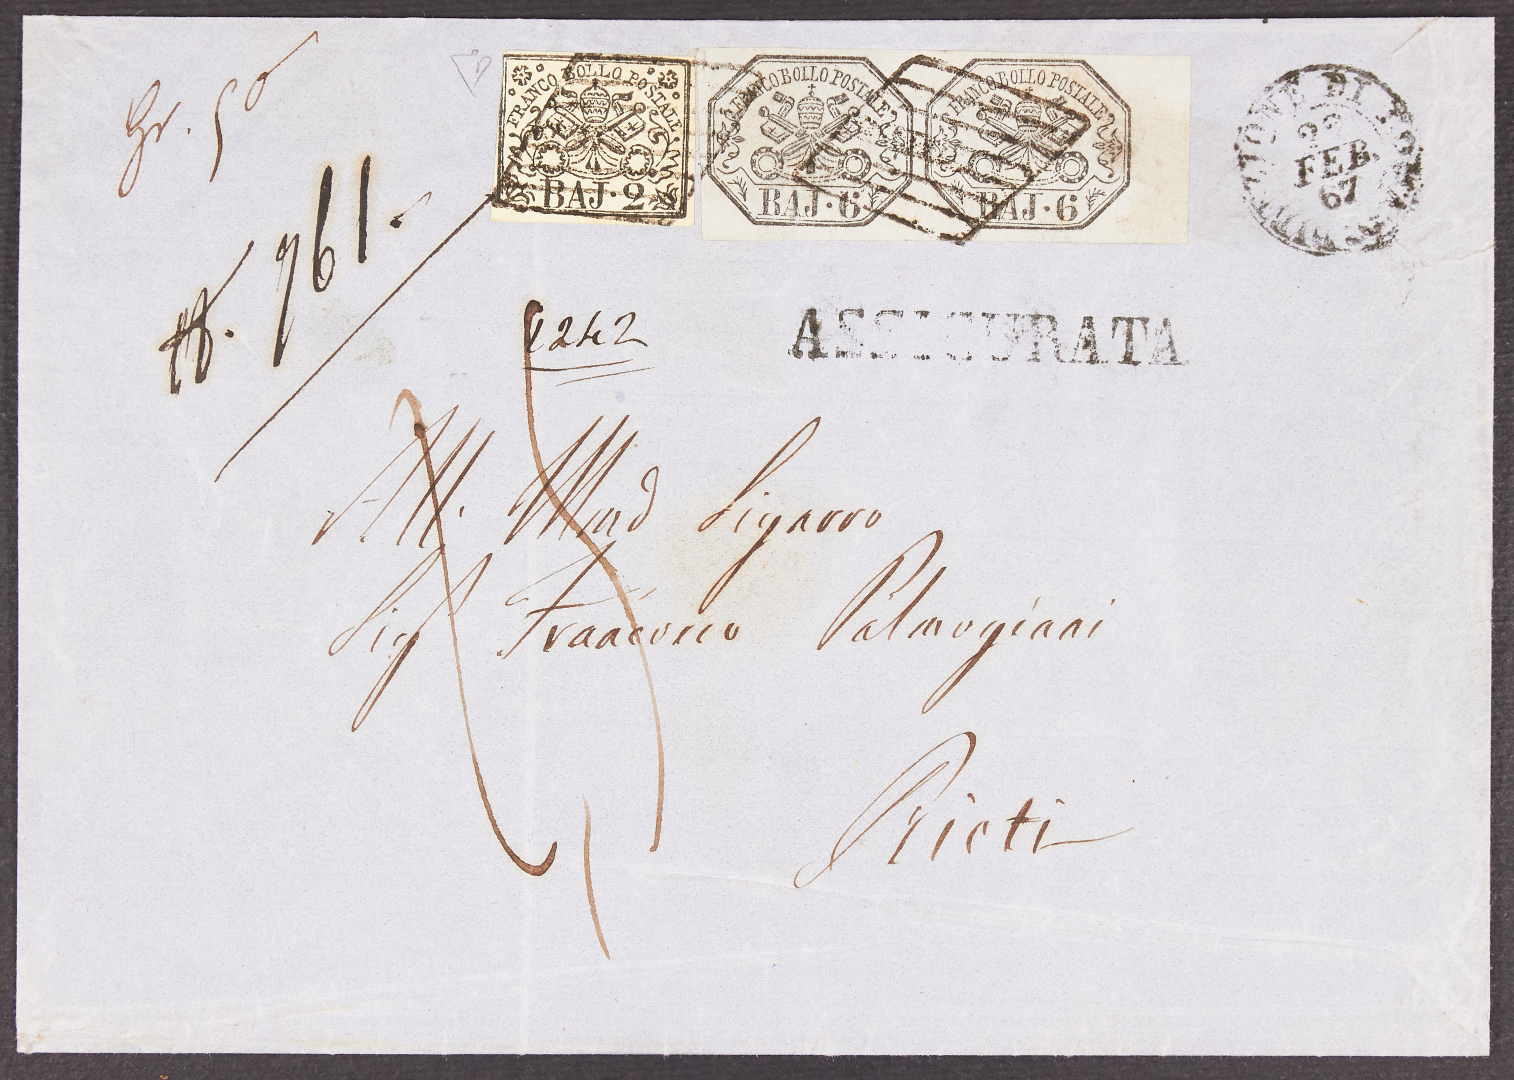 Gr. 50
FRANCO BOLLO POSTALE
BAJ·2
FRANCO BOLLO POSTALE
BAJ·6
FRANCO BOLLO POSTALE
BAJ·6
DIREZIONE DI
23
FEB
67
961.
1242
ASSICURATA
All.
Sig. Francesco Palmegiani
Rieti